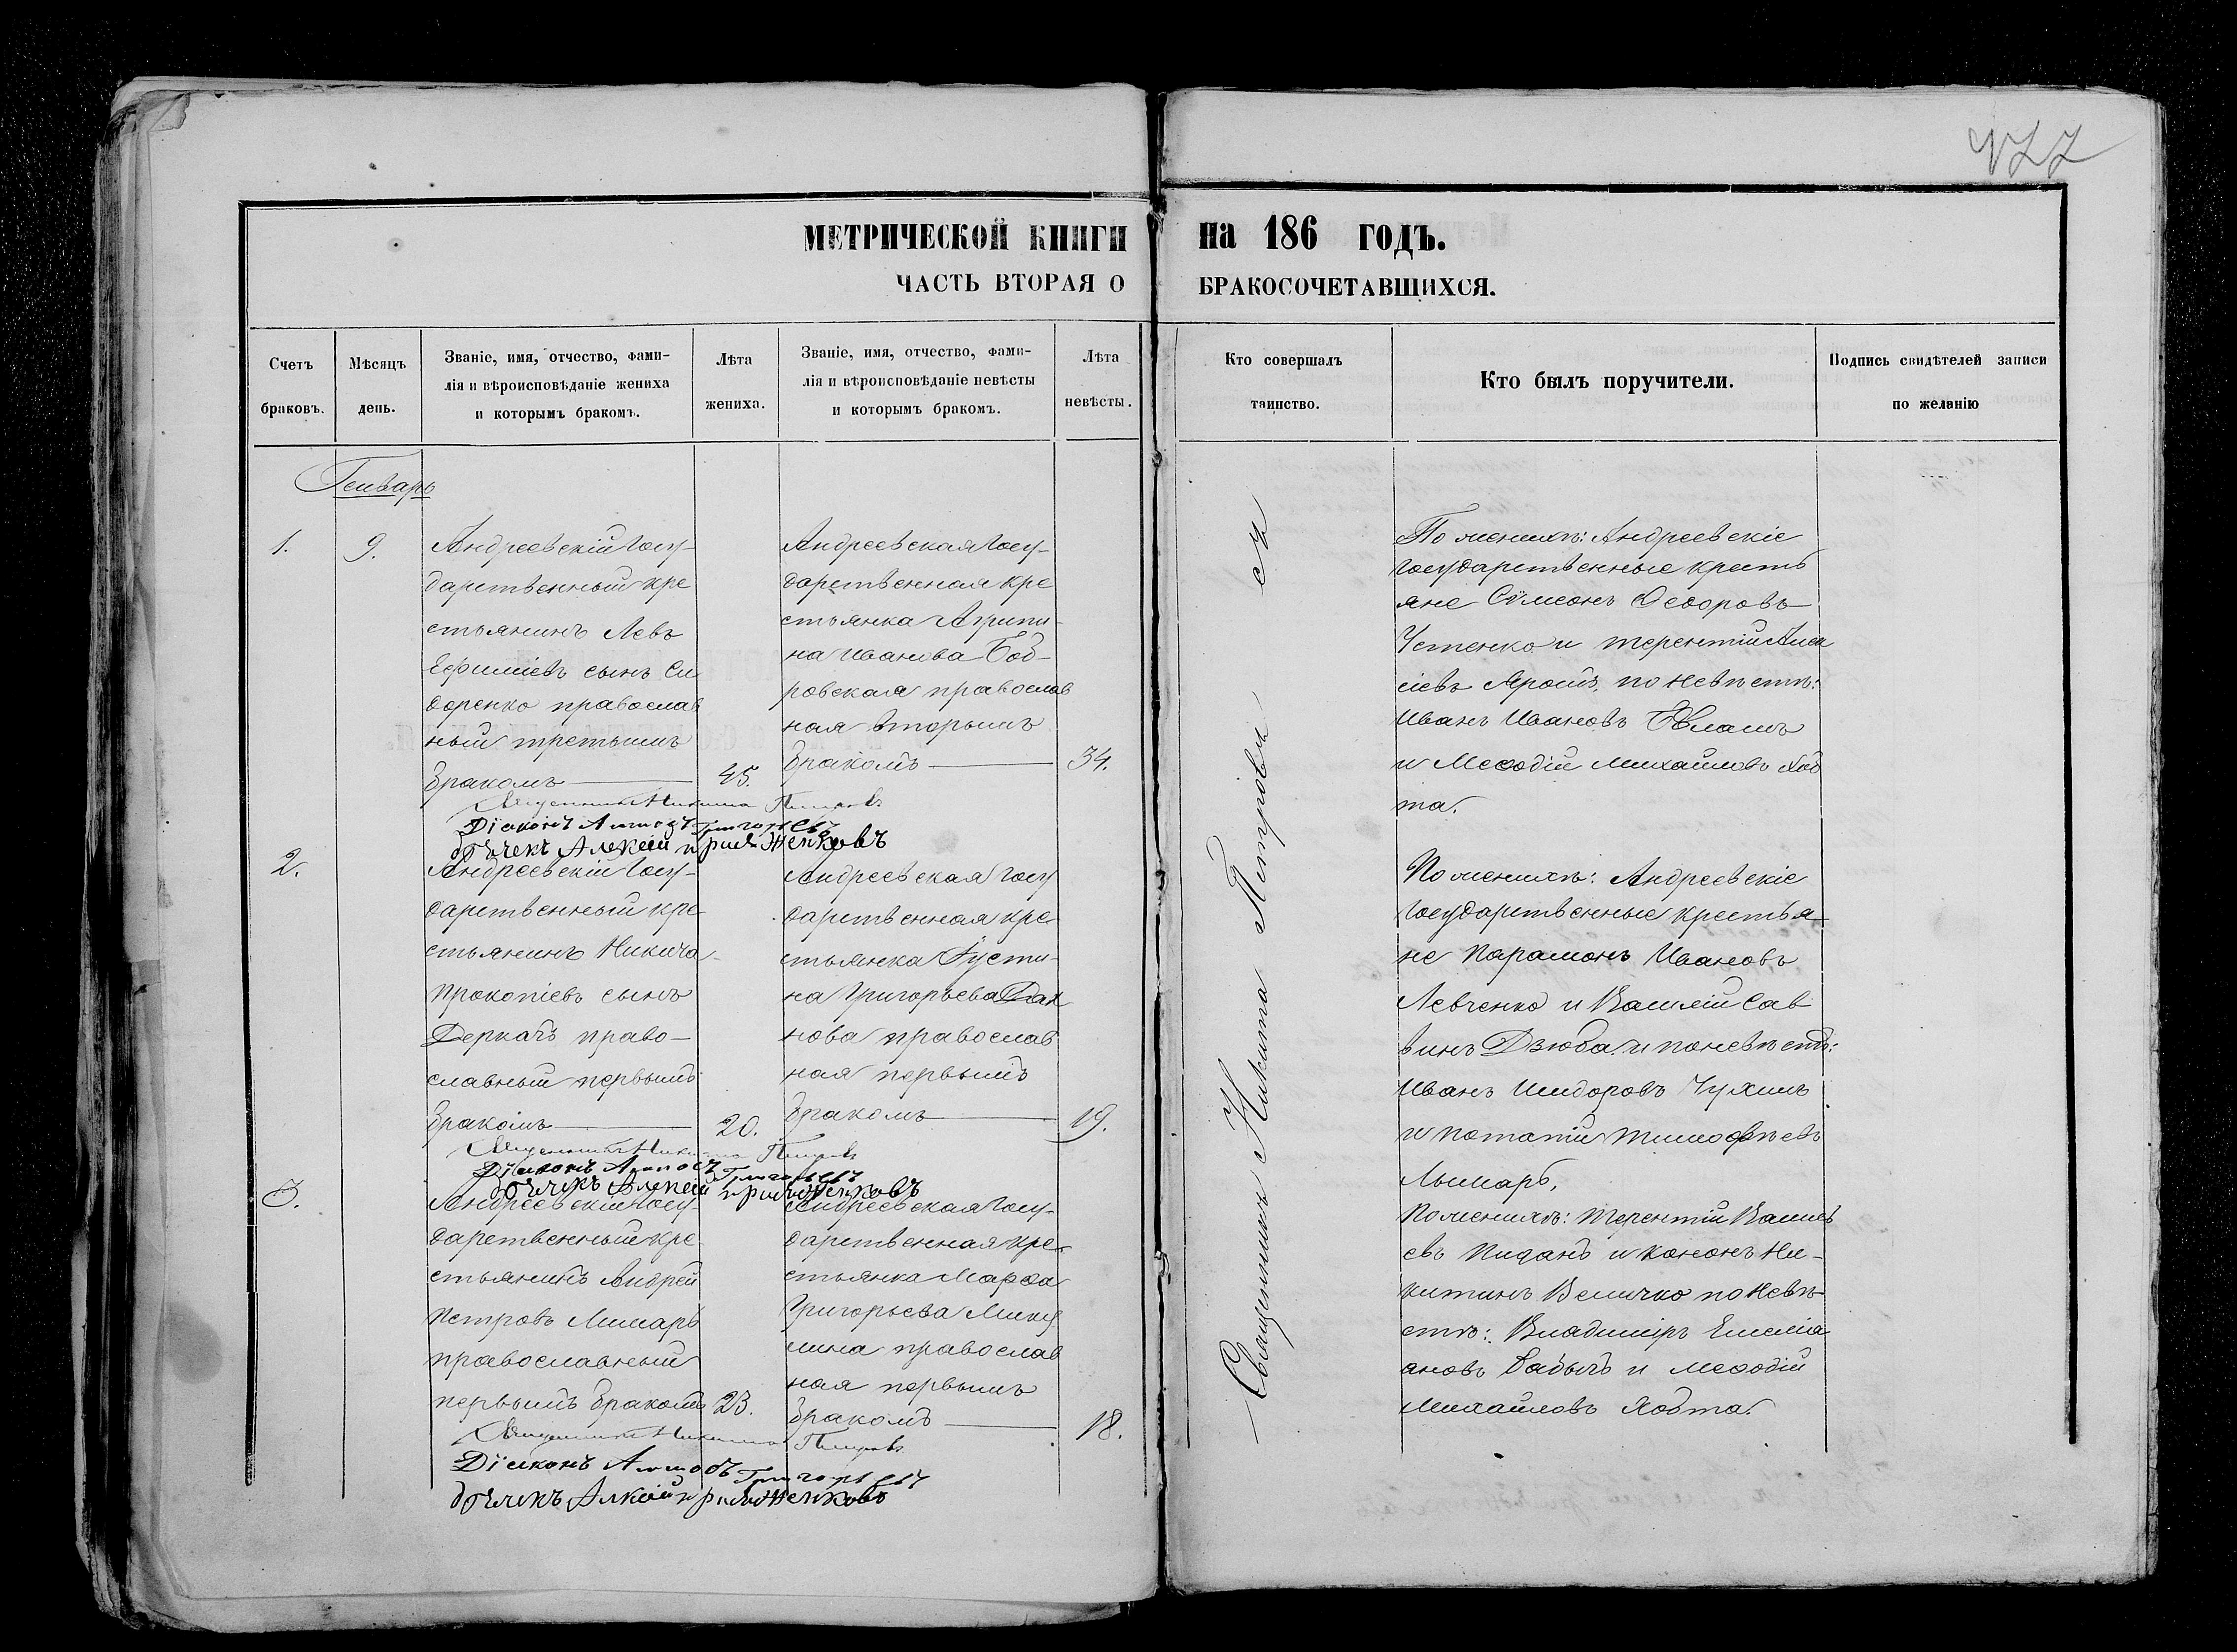 977
МЕТРИЧЕСКОЙ КНИГИ на 186 ГОДЪ.
ЧАСТЬ ВТОРАЯ О БРАКОСОЧЕТАВШИХСЯ.
Счетъ
браковъ.
Мѣсяцъ
день.
Званіе, имя, отчество, фами-
лія и вѣроисповѣданіе жениха
и которымъ бракомъ.
Лѣта
жениха.
Званіе, имя, отчество, фами-
лія и вѣроисповѣданіе невѣсты
и которымъ бракомъ.
Лѣта
невѣсты.
Кто совершалъ
таинство.
Кто былъ поручители.
Подпись свидѣтелей записи
по желанію
Генварь
1.
9.
Андреевскій госу-
дарственный кре
стьянинъ Левъ
Ефиміевъ сынъ Си
доренко православ
ный третьимъ
бракомъ
45.
Андреевская госу-
дарственная кре
стьянка Агрипи-
на Иванова Бод-
ровская православ
ная вторымъ
бракомъ
34.
Священникъ Никита Петровъ
По женихѣ: Андреевскіе
государственные кресть
яне Сѵмеонъ Ѳедоровъ
Устенко и Терентій Алек
сіевъ по невѣстѣ:
Иванъ Ивановъ
и Меѳодій Михайловъ Хоб
та.
Священникъ Никита Петровъ
Діаконъ Григорьевъ
дьячекъ Алексій
2.
Андреевскій госу-
дарственный кре
стьянинъ Никита
Прокопіевъ сынъ
Деркачъ право-
славный первымъ
бракомъ
20.
Андреевская госу
дарственная кре
стьянка Іусти-
на Григорьева
нова православ
ная первымъ
бракомъ
19.
По женихѣ: Андреевскіе
государственные крестья-
не Парамонъ Ивановъ
Левченко и Василій Сав
винъ Дзюба и по невѣстѣ:
Иванъ Исидоровъ
и Потапій Тимоѳѣевъ
Лымарь,
Священникъ Никита Петровъ
Діаконъ Григорьевъ
дьячекъ Алексій
3.
Андреевскій госу-
дарственный кре
стьянинъ Андрей
Петровъ Лимарь
православный
первымъ бракомъ
23.
Андреевская госу-
дарственная кре-
стьянка Марѳа
Григорьева Мику
лина православ
ная первымъ
бракомъ
18.
По женихѣ: Терентій Васильі
евъ и Кононъ Ни-
китинъ Величко по невѣ-
стѣ: Владиміръ Емелиа
новъ Бабичъ и Меѳодій
Михайловъ Хобта.
Священникъ Никита Петровъ
Діаконъ Григорьевъ
дьячекъ Алексій